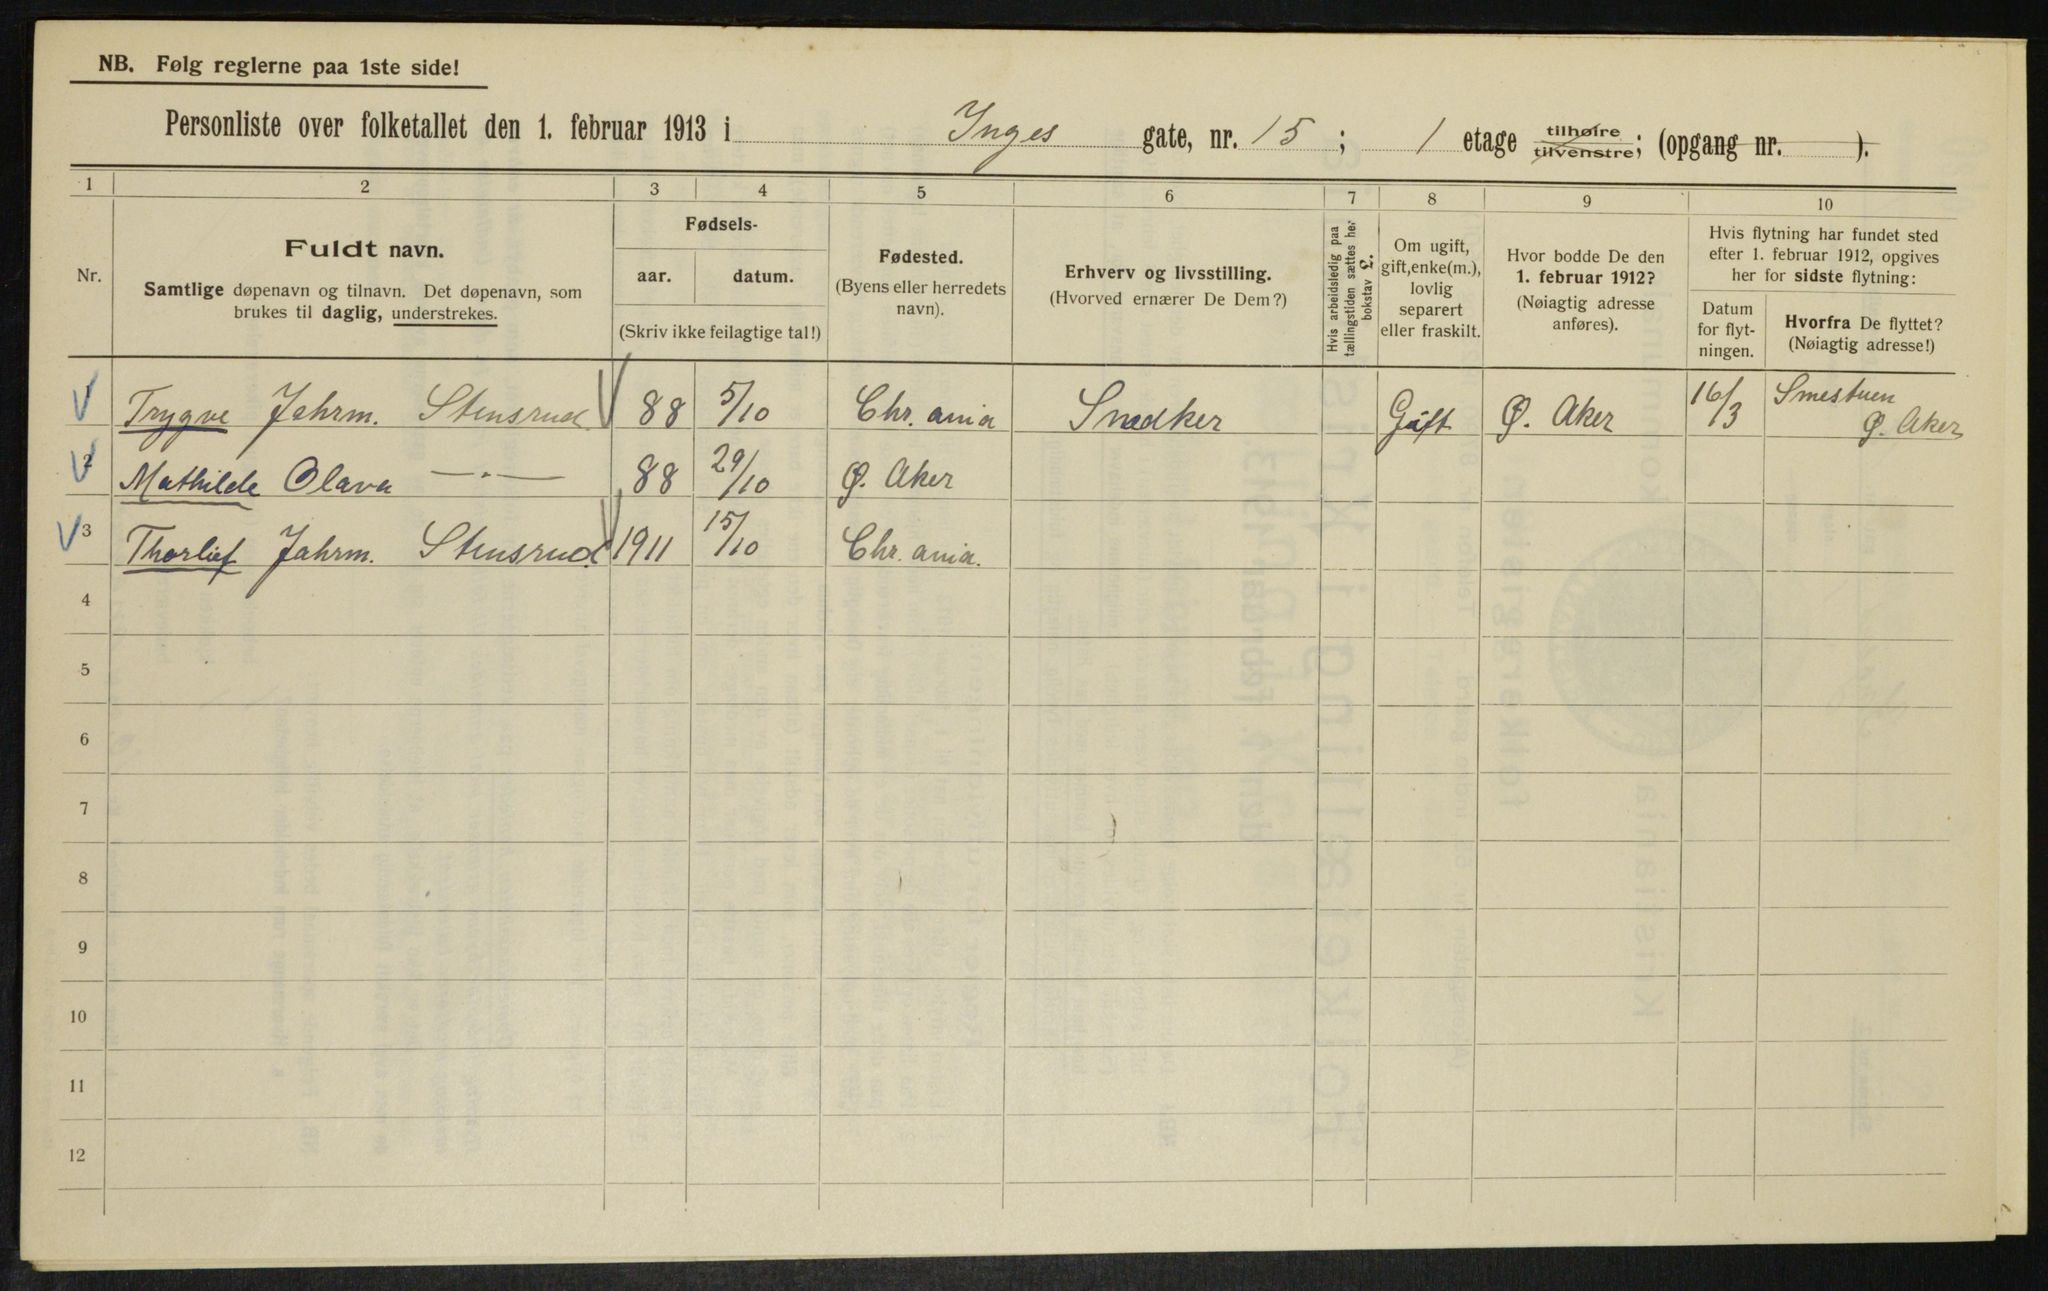 NB. Følg reglerne paa 1ste side!
Personliste over folketallet den 1. februar 1913 i Inges gate, nr. 15; 1 etage tilhøire tilvenstre; (opgang nr. ).
1 2 3 4 5 6 7 8 9 10
Nr.
Fuldt navn.
Samtlige døpenavn og tilnavn. Det døpenavn, som
brukes til daglig, understrekes.
Fødsels-
aar. datum.
(Skriv ikke feilagtige tal!)
Fødested.
(Byens eller herredets
navn).
Erhverv og livsstilling.
(Hvorved ernærer De Dem?)
Hvis arbeidsledig paa
tællingstiden sættes her
bokstav L.
Om ugift,
gift, enke(m.),
lovlig
separert
eller fraskilt.
Hvor bodde De den
1. februar 1912?
(Nøiagtig adresse
anføres).
Hvis flytning har fundet sted
efter 1. februar 1912, opgives
her for sidste flytning:
Datum
for flyt-
ningen.
Hvorfra De flyttet?
(Nøiagtig adresse!)
1 Trygve Jahrm. Stensrud 88 5/10 Chr. ania Snedker Gift Ø. Aker 16/3 Smestuen
Ø. Aker
2 Mathilde Olava —·— 88 29/10 Ø. Aker
3 Thorlief Jahrm. Stensrud 1911 15/10 Chr. ania.
4
5
6
7
8
9
10
11
12